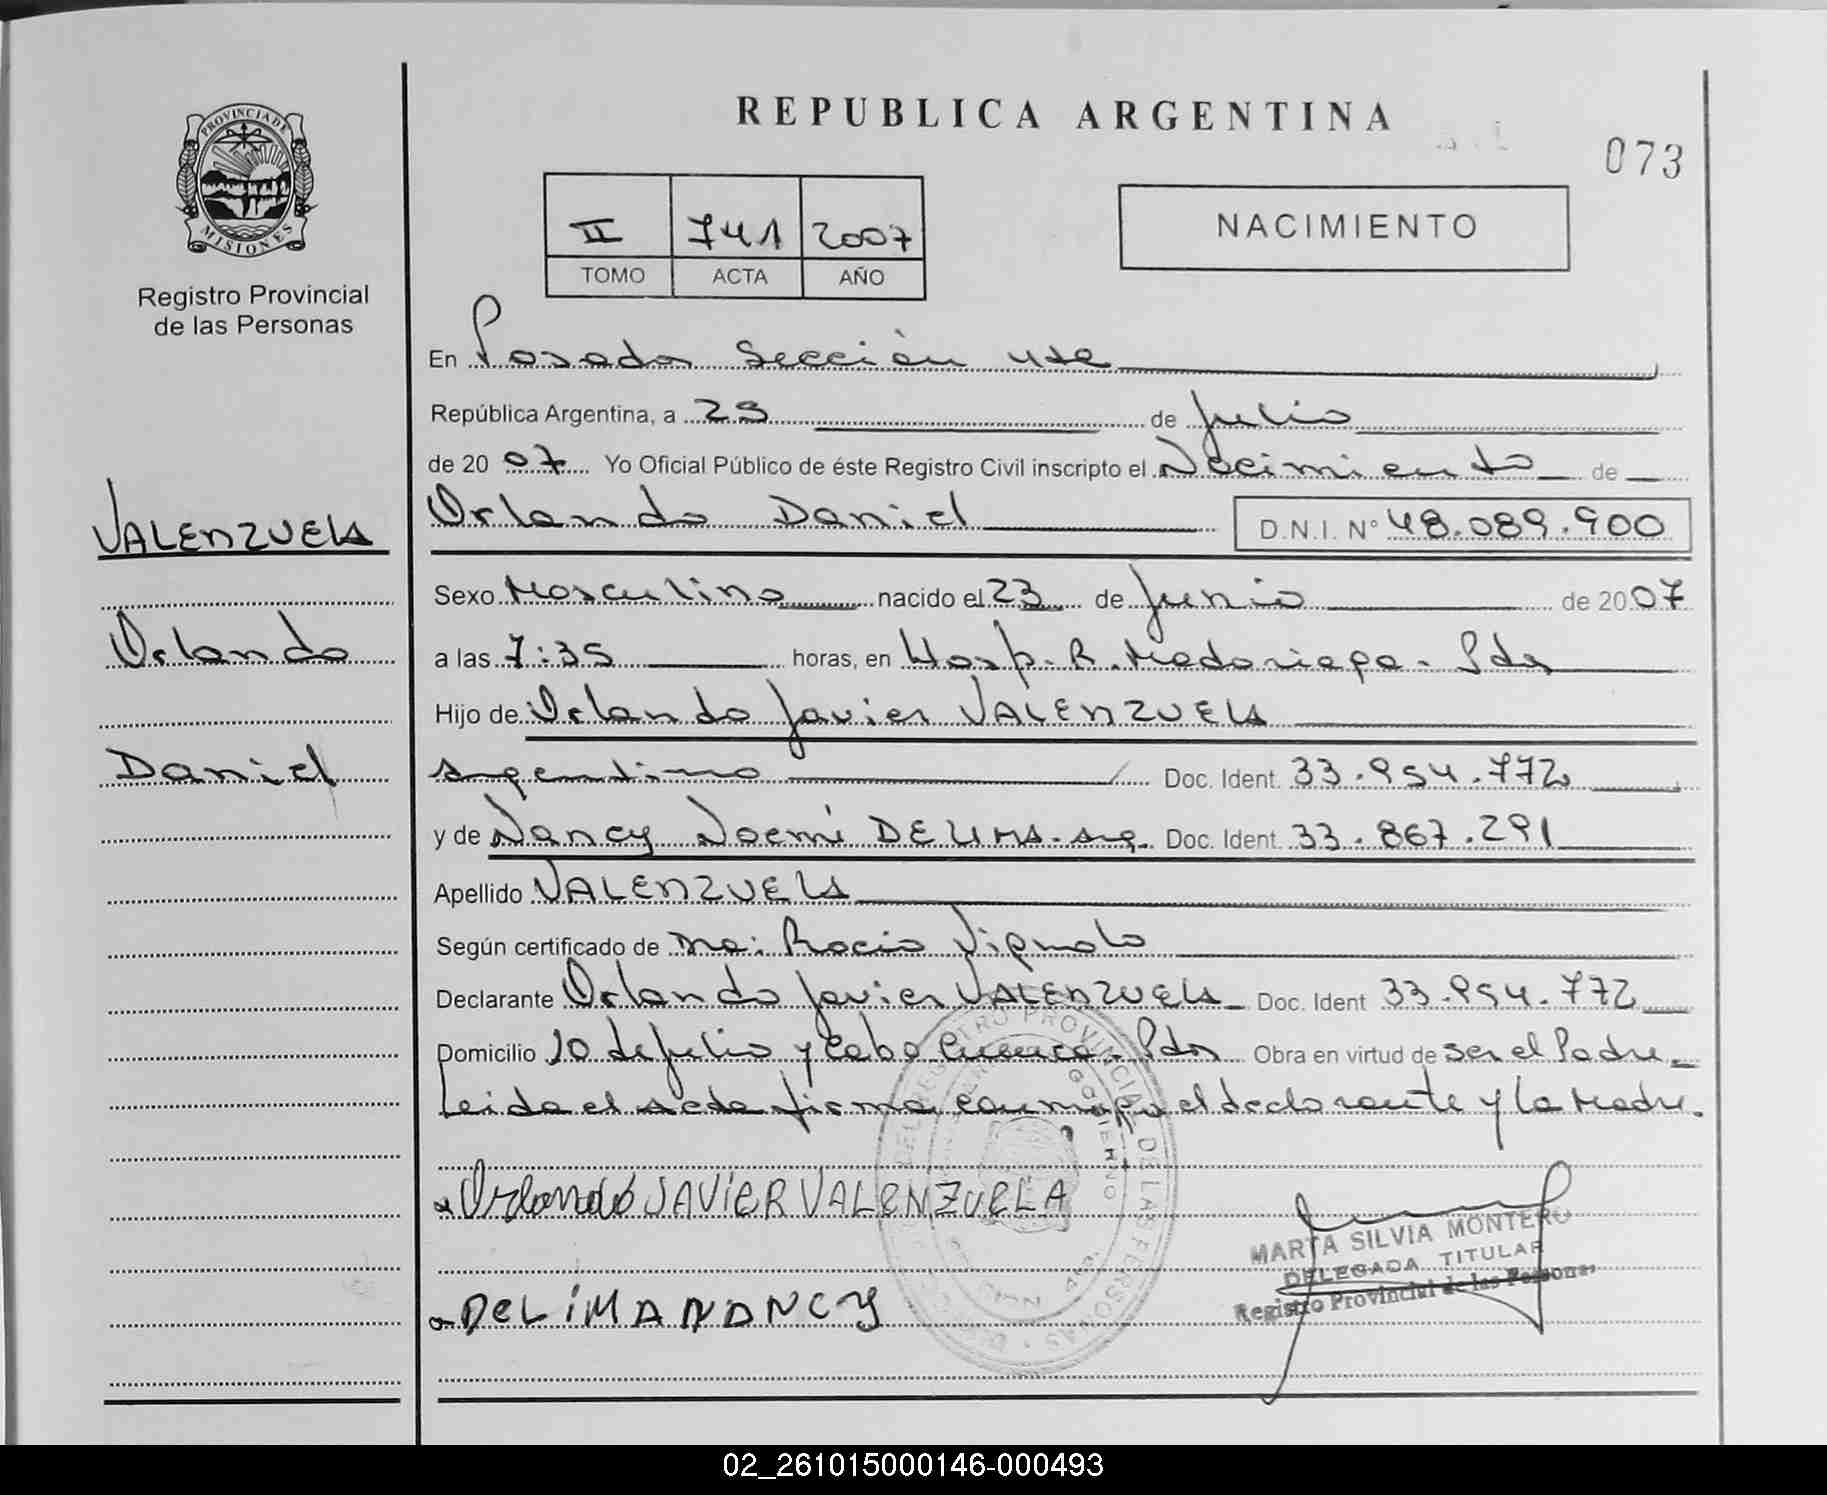 REPUBLICA ARGENTINA
073
PROVINCIA DE
MISIONES
Registro Provincial
de las Personas
II 741 2007
TOMO ACTA AÑO
NACIMIENTO
En Posadas Sección
República Argentina, a 23 de Julio
de 2007 Yo Oficial Público de éste Registro Civil inscripto el Nacimiento de
VALENZUELA
Orlando Daniel D.N.I. N° 48.089.900
Sexo Masculino nacido el 23 de Junio de 2007
Orlando
a las 7:35 horas, en Hosp. R. Madariaga - Pdas
Hijo de Orlando Javier VALENZUELA
Daniel
argentino Doc. Ident. 33.954.772
y de Nancy Noemí DE LIMA - arg. Doc. Ident. 33.867.291
Apellido VALENZUELA
Según certificado de Dra: Rocio Vignolo
Declarante Orlando Javier VALENZUELA Doc. Ident 33.954.772
Domicilio de Julio y Cabo Pdas Obra en virtud de ser el Padre
Leida el acta firma conmigo el declarante y la Madre.
Orlando JAVIER VALENZUELA
MARTA SILVIA MONTERO
DELEGADA TITULAR
Registro Provincial de las Personas
DELIMA NANCY
02_261015000146-000493